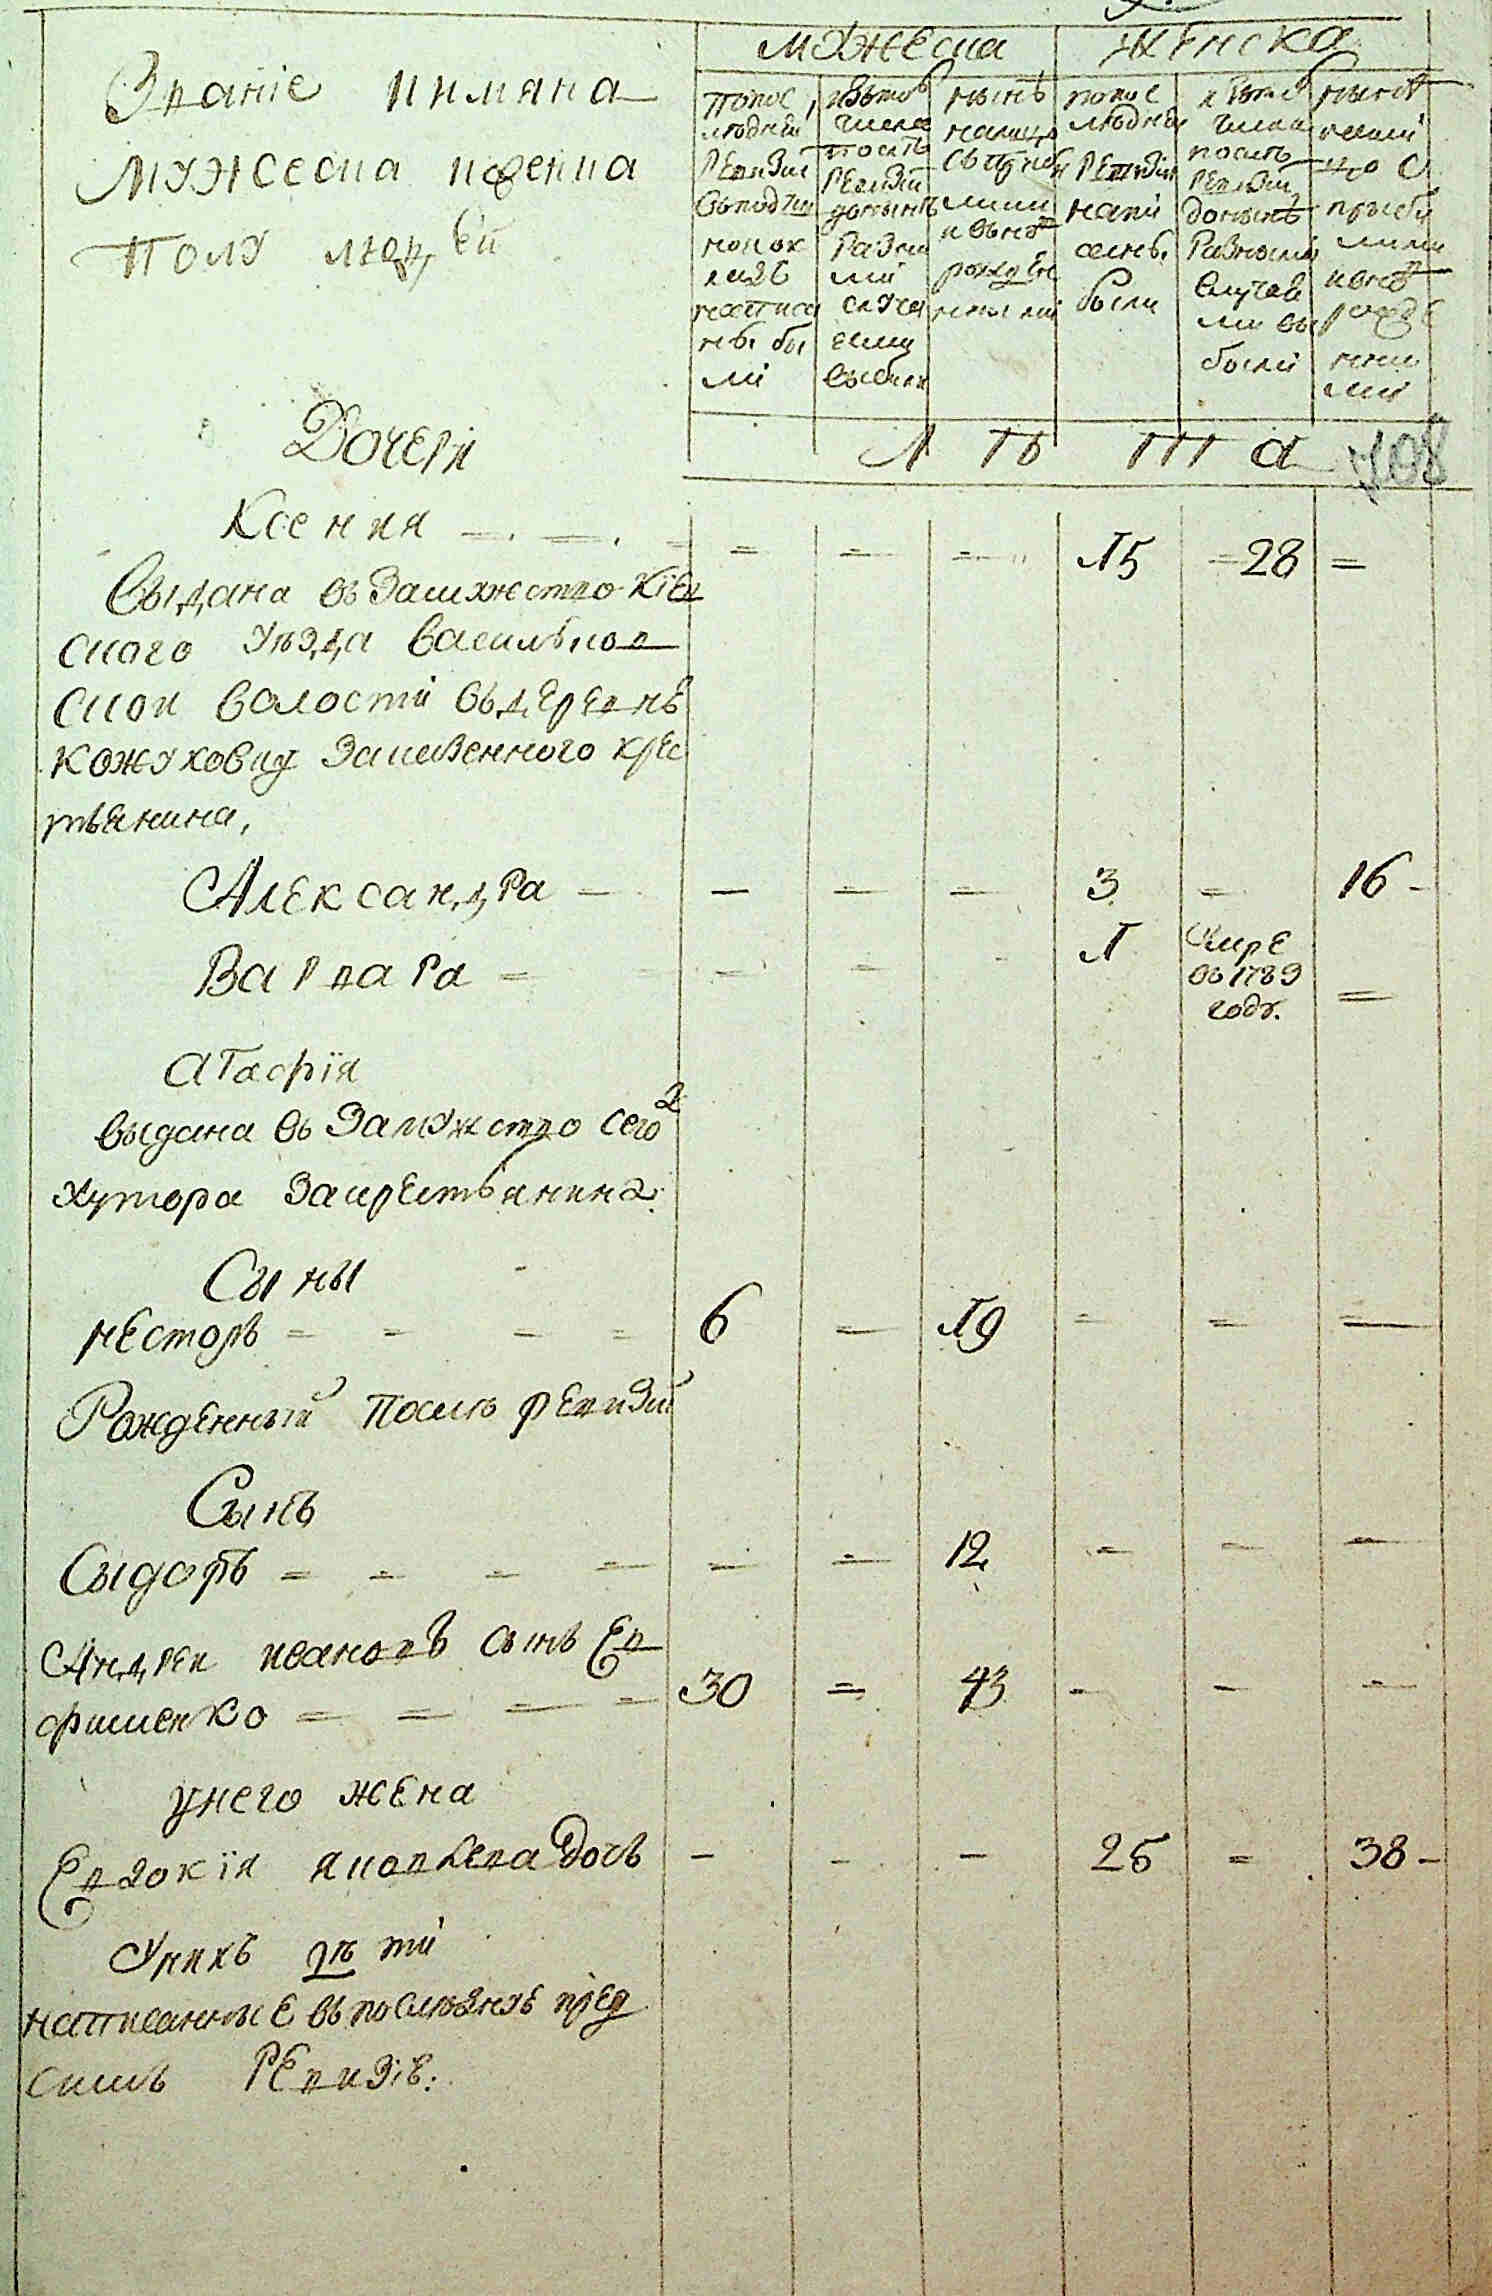 Званіе иимяна
мужеска иженска
полу людей
мужеска
женска
Попос
людней
Ревизіи
воподуш
номок
ладе
написа
ны бы
ли
изътово
числа
послѣ
Ревизій
донынѣ
Разны
ми
случа
ями
выбыли
нынѣ
налицо
съприбы
лими
ивнов
рожден
ными
попос
людней
Ревизіи
напи
саны
были
изъ того
числа
послѣ
Ревизіи
донынѣ
Разными
случая
ми вы
были
нынѣ
нали
цо с
прибы
лими
ивнов
рожде
нны
ми
Л Ѣ Т а 708
Дочери
Ксения = = = = = = 15 = 28 =
Выдана въ Замужство Кіев
ского уѣзда Васильков
ской волости въдеревнѣ
кожуховку Заказенного крес
тьянина,
Александра = = = = 3 = 16 -
Варвара = = = - 1 умре въ 1789 году. =
Агафія
выдана въ Замужство сего
хутора Закрестьянина.
Сыны
несторъ = = = = 6 = 19 = = =
Рожденный послѣ ревизіи
Сынъ
Сыдоръ = = = = = = 12 = = =
Андрей ивановъ сынъ Ев
фименко = = = = 30 = 43 - - -
унего жена
Евдокія яковлева дочь - - - 25 = 38 -
Унихъ дѣти
написанные въ послѣднѣ пред
симъ Ревизіе: